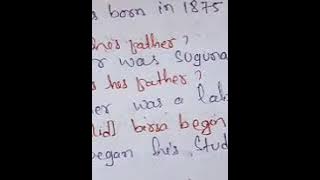 s born in 1875
his father?
er was Suguna
s his father?
her was a lab
did birsa begin
began he's stud